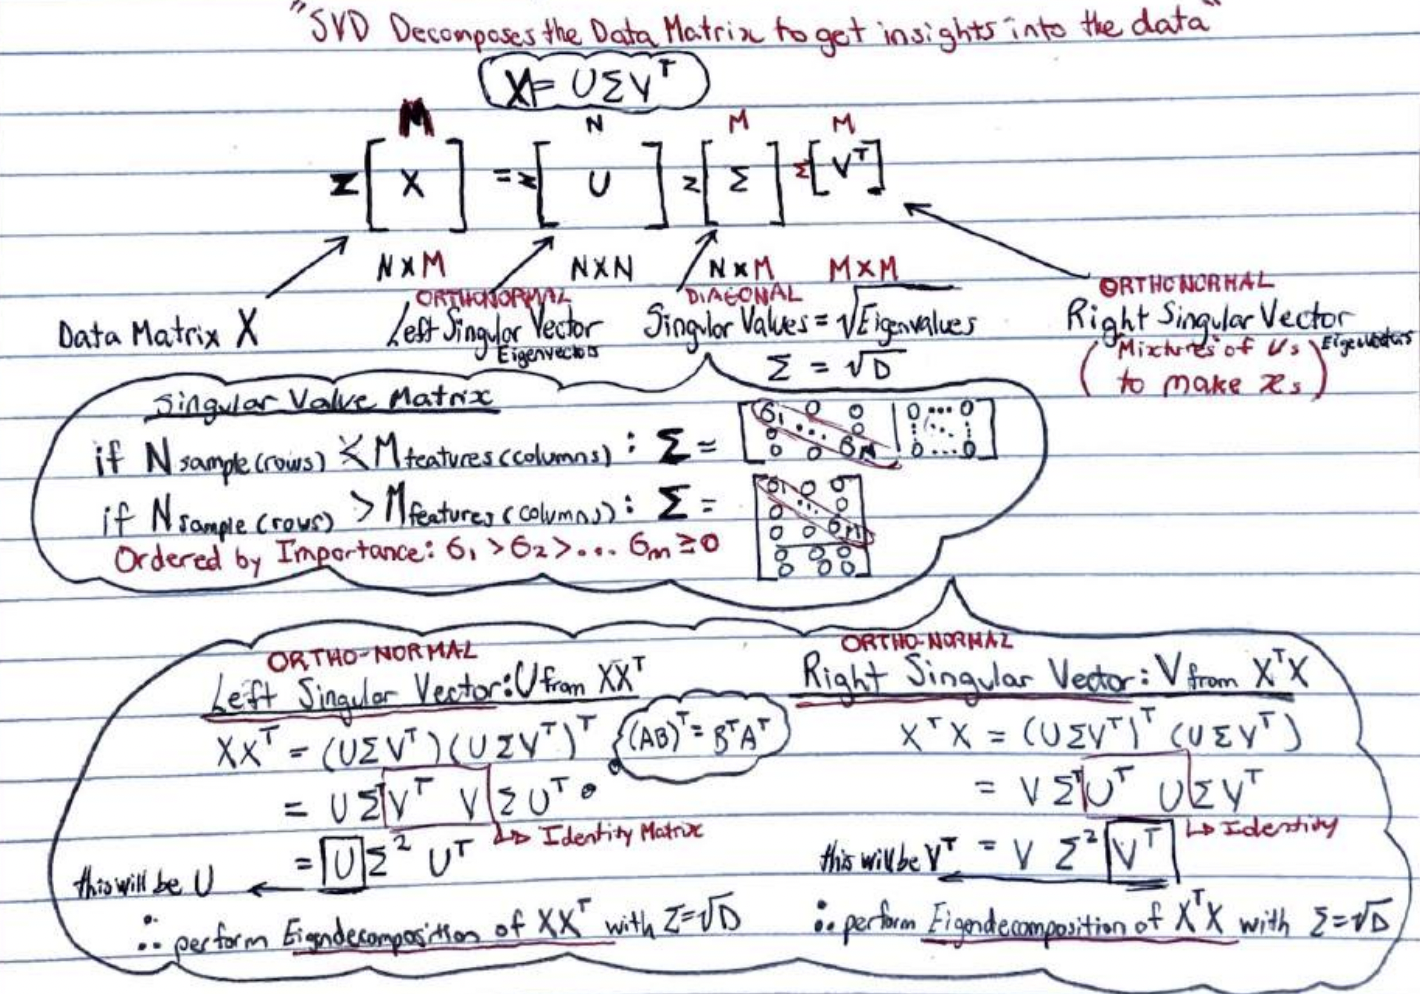 "SVD Decomposes the Data Matrix to get insights into the data"
X = UΣV^T
M N M M
N [ X ] = N [ U ] N [ Σ ] M [ V^T ]
N x M N x N N x M M x M
ORTHONORMAL DIAGONAL ORTHONORMAL
Data Matrix X Left Singular Vector Singular Values = √Eigenvalues Right Singular Vector
Eigenvectors Σ = √D (Mixtures of Us Eigenvectors
to make xs)
Singular Value Matrix
if N sample (rows) < M features (columns) : Σ = [ σ1 0 0 | 0 ... 0
0 ... 0 | ⋮ ⋱ ⋮
0 0 σN | 0 ... 0 ]
if N sample (rows) > M features (columns) : Σ = [ σ1 0 0
0 ... 0
0 0 σm
0 0 0
0 0 0 ]
Ordered by Importance: σ1 > σ2 > ... σm ≥ 0
ORTHO-NORMAL
Left Singular Vector: U from XX^T
XX^T = (UΣV^T)(UΣV^T)^T
(AB)^T = B^T A^T
= UΣ^T V^T V Σ U^T
↳ Identity Matrix
= U Σ² U^T
this will be U ←
∴ perform Eigendecomposition of XX^T with Σ=√D
ORTHO-NORMAL
Right Singular Vector: V from X^T X
X^T X = (UΣV^T)^T (UΣV^T)
= V Σ^T U^T U Σ V^T
↳ Identity
this will be V^T = V Σ² V^T
∴ perform Eigendecomposition of X^T X with Σ=√D